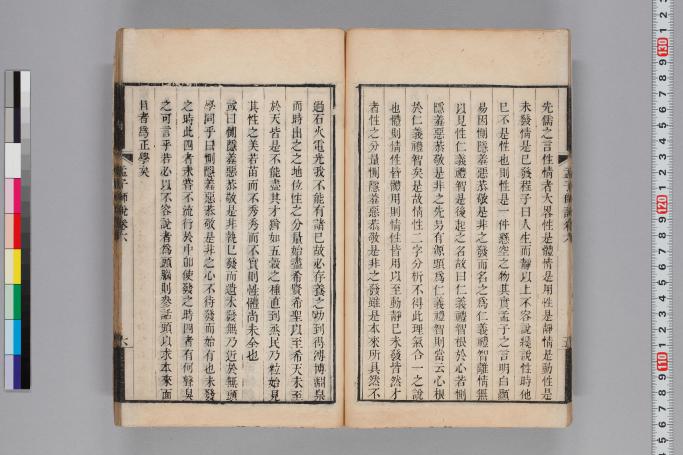 先儒之言性情者大畧性是體情是用性是靜情是動性是
未發情是已發程子曰人生而靜以上不容說纔說性時他
已不是性也則性是一件懸空之物其實孟子之言明白顯
易因惻隱羞惡恭敬是非之發而名之爲仁義禮智離情無
以見性仁義禮智是後起之名故曰仁義禮智根於心若惻
隱羞惡恭敬是非之先另有源頭爲仁義禮智則當云心根
於仁義禮智矣是故情性二字分析不得此理氣合一之說
也體則情性皆體用則情性皆用以至動靜已未發皆然才
者性之分量惻隱羞惡恭敬是非之發雖是本來所具然不
過石火電光我不能有諸已故必存養之功到得溥博淵泉
而時出之之地位性之分量始盡希賢希聖以至希天未至
於天皆是不能盡其才猶如五穀之種直到烝民乃粒始見
其性之美若苗而不秀秀而不實則性體尚未全也
或曰惻隱羞惡恭敬是非孰已發而遺未發無乃近於無頭
學問乎曰惻隱羞惡恭敬是非之心不待發而始有也未發
之時此四者未嘗不流行於中卽使發之時四者有何聲臭
之可言乎若必以不容說者爲頭腦則參話頭以求本來面
目者爲正學矣
孟子師說卷六
六